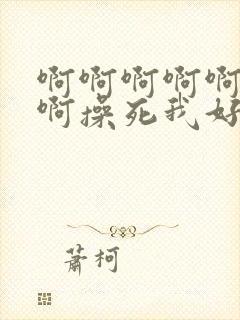 啊啊啊啊啊
啊操死我好
萧柯